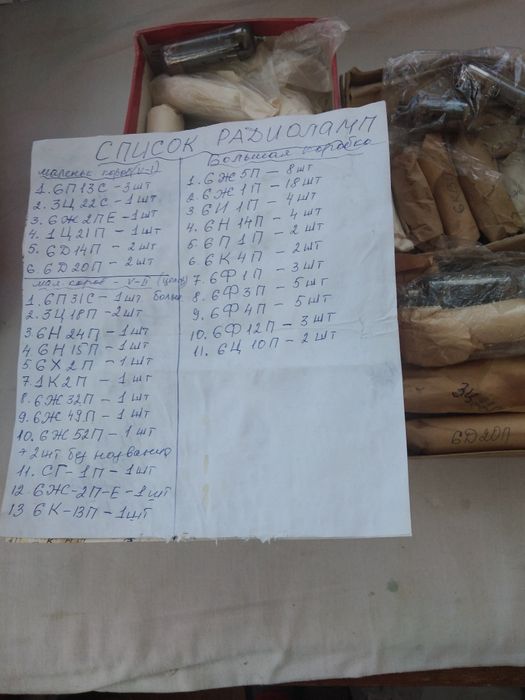 СПИСОК РАДИОЛАМП
маленьк. короб (V-I)
1. 6П13С - 3 шт
2. 3Ц22С - 1 шт
3. 6Ж2ПЕ - 1 шт
4. 1Ц21П - 1 шт
5. 6D14П - 2 шт
6. 6D20П - 2 шт
мал короб - V-II
1. 6П31С - 1 шт больш
2. 3Ц18П - 2 шт
3 6Н24П - 1 шт
4 6Н15П - 1 шт
5 6Х2П - 1 шт
7. 1К2П - 1 шт
8. 6Ж32П - 1 шт
9. 6Ж49П - 1 шт
10. 6Ж52П - 1 шт
+ 2 шт без названия
11. СГ-1П - 1 шт
12 6ЖС-2П-Е - 1 шт
13 6К-13П - 1 шт
Большая коробка
1. 6Ж5П - 8 шт
2. 6Ж1П - 18 шт
3 6И1П - 4 шт
4. 6Н14П - 4 шт
5 6П1П - 2 шт
6. 6К4П - 2 шт
7. 6Ф1П - 3 шт
8. 6Ф3П - 5 шт
9. 6Ф4П - 5 шт
10. 6Ф12П - 3 шт
11. 6Ц10П - 2 шт
6D20П